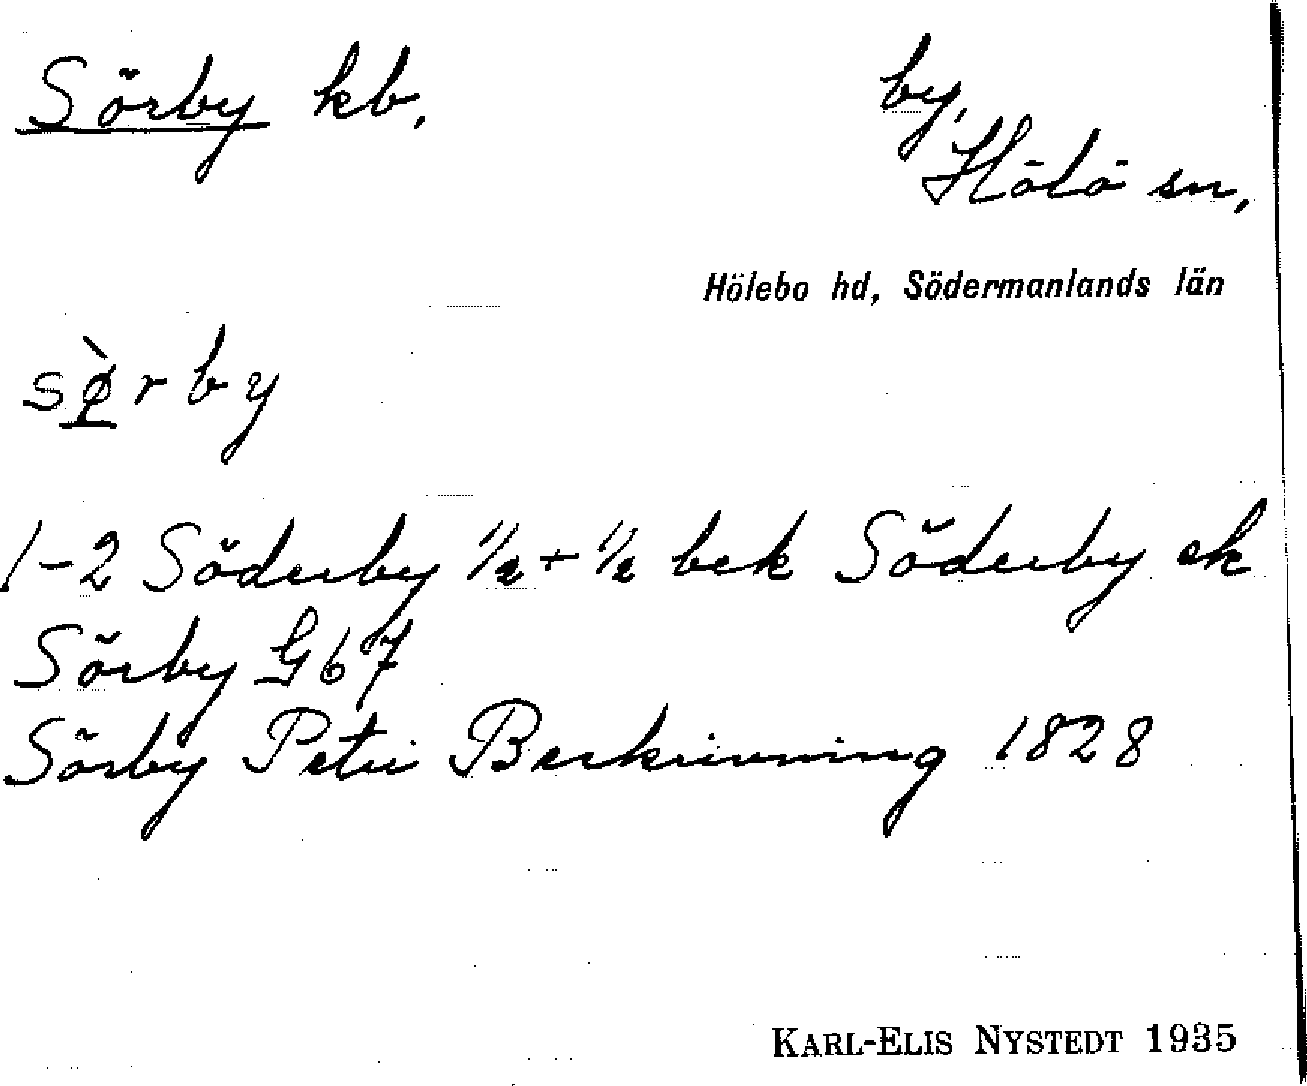 Sörby kb,
by,
Hölö sn,
Hölebo hd, Södermanlands län
sø̀rby
1-2 Söderby 1/2 + 1/2 bek Söderby ek
Sörby G67
Sörby Petri Beskrivning 1828
KARL-ELIS NYSTEDT 1935